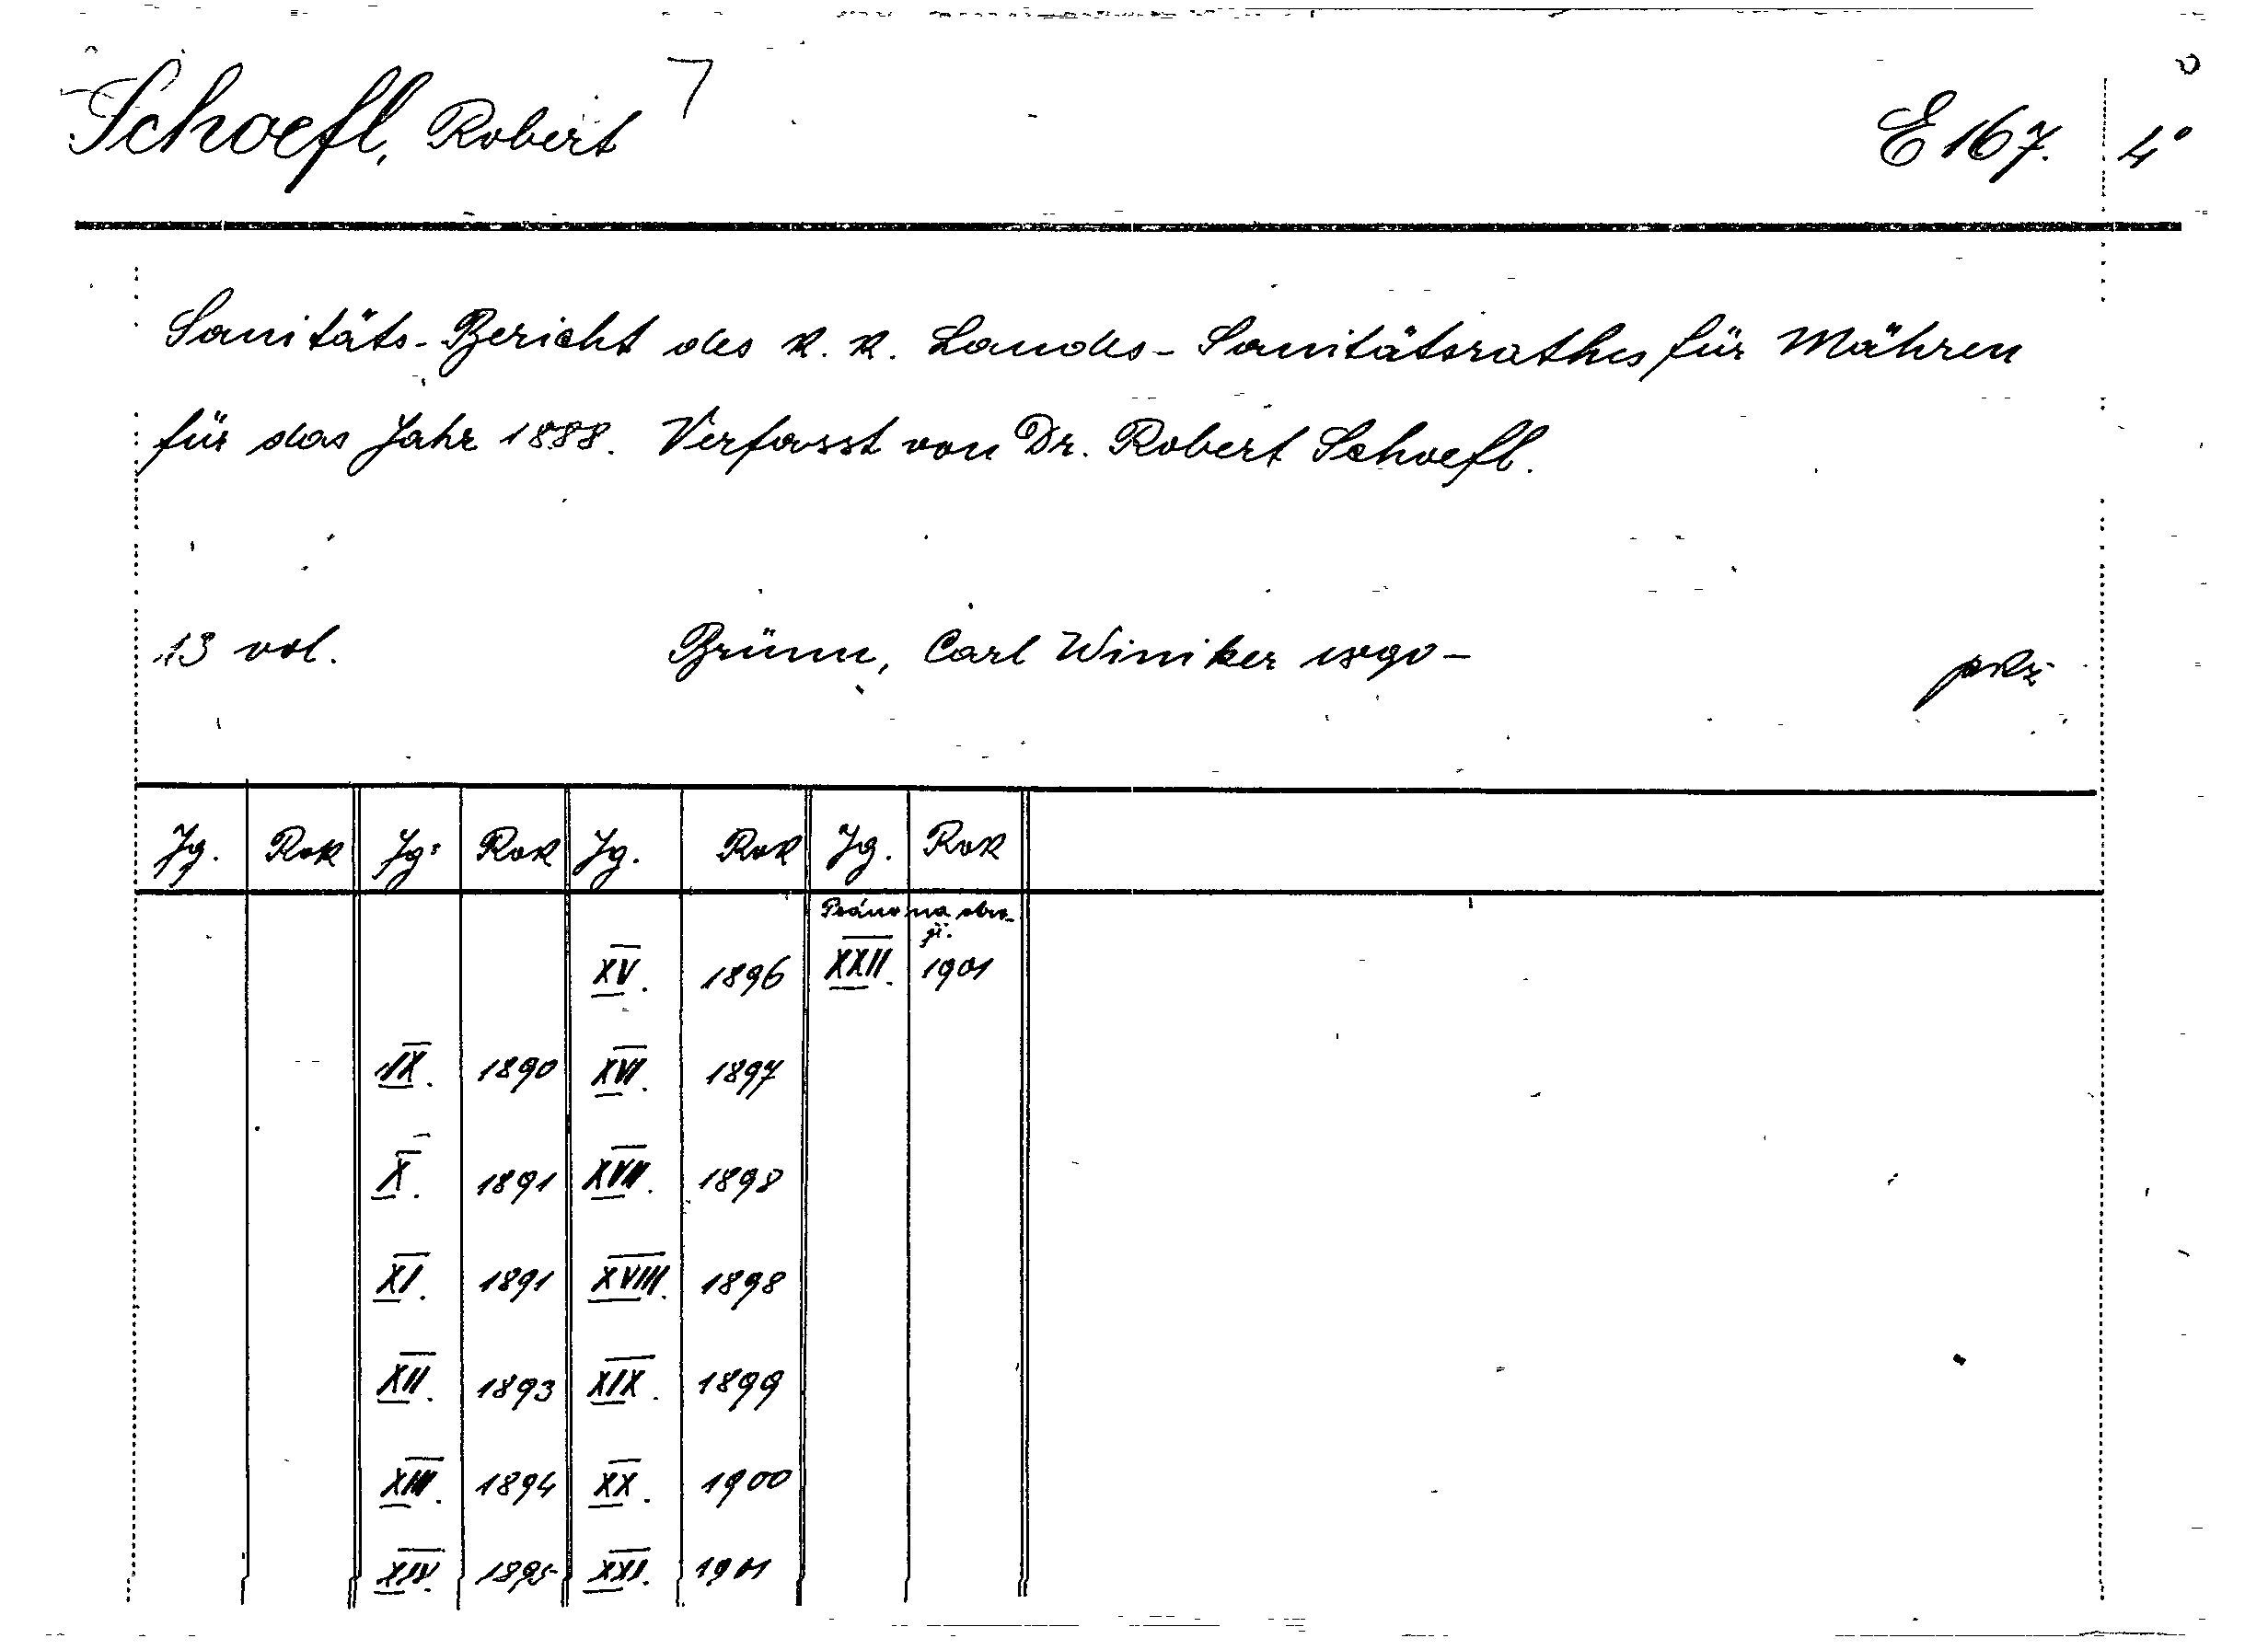 Schoefl, Robert E 167. 4°
Sanitäts-Bericht des k. k. Landes-Sanitätsrathes für Mähren
für das Jahr 1888. Verfasst von Dr. Robert Schoefl.
13 vol. Brünn, Carl Winiker 1890-
Jg. Rok Jg. Rok Jg. Rok Jg. Rok
Psáno na obu-
jí.
XV. 1896 XXII. 1901
IX. 1890 XVI. 1897
X. 1891 XVII. 1898
XI. 1891 XVIII. 1898
XII. 1893 XIX. 1899
XIII. 1894 XX. 1900
XIV. 1895 XXI. 1901